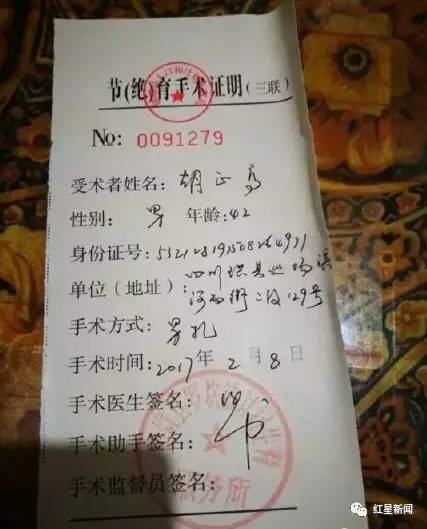 节(绝)育手术证明(三联)
№: 0091279
受术者姓名: 胡正高
性别: 男 年龄: 42
身份证号:
单位(地址): 四川珙县巡场镇
河西街二段129号
手术方式: 男扎
手术时间: 2017年2月8日
手术医生签名:
手术助手签名:
手术监督员签名:
服务所
红星新闻